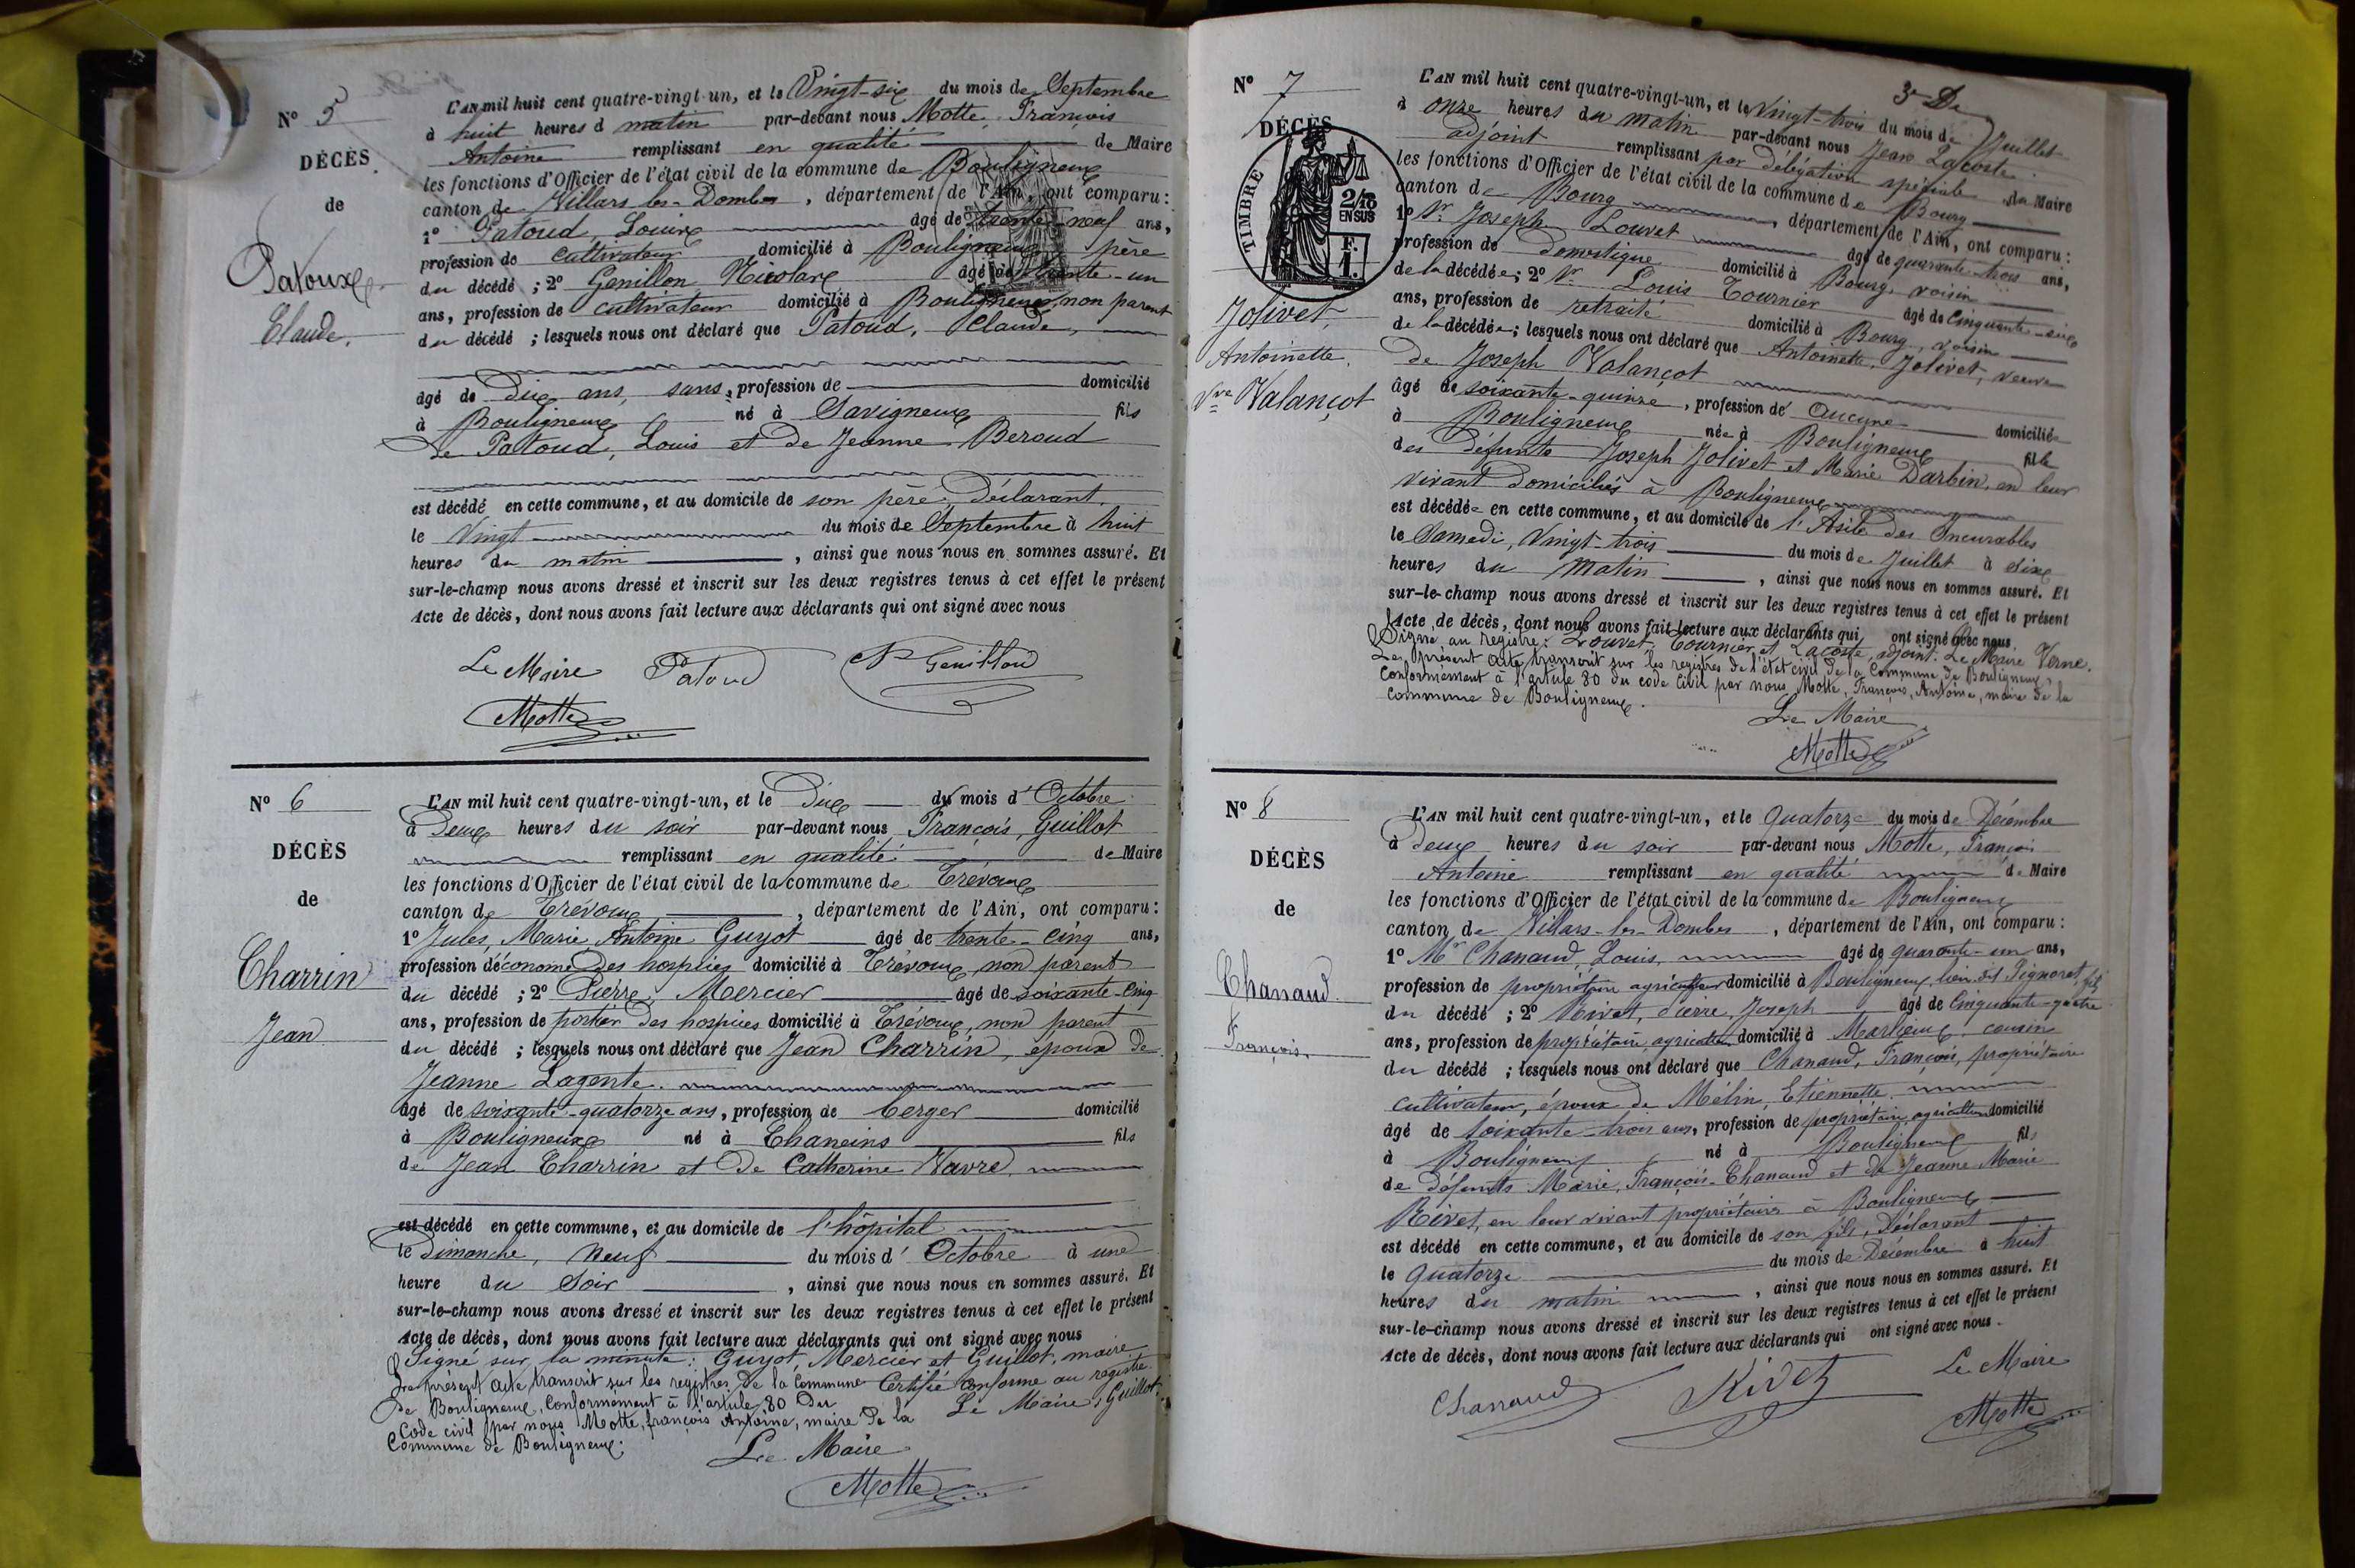 N° 5
DÉCÈS
de
Patoux
Claude,
L'AN mil huit cent quatre-vingt-un, et le Vingt-six du mois de Septembre
à huit heures d matin par-devant nous Motte, François
Antoine remplissant en qualité de Maire
les fonctions d'Officier de l'état civil de la commune de Bouligneux
canton de Villars les-Dombes, département de l'Ain, ont comparu:
1° Patoud, Louis âgé de trente-neuf ans,
profession de cultivateur domicilié à Bouligneux père
du décédé ; 2° Genillon, Nicolas âgé de -un
ans, profession de cultivateur domicilié à Bouligneux, non parent
du décédé ; lesquels nous ont déclaré que Patoud, Claude,
âgé de Dix ans, sans, profession de domicilié
à Bouligneux né à Savigneux fils
de Patoud, Louis et de Jeanne Beroud
est décédé en cette commune, et au domicile de son père, Déclarant,
le Vingt du mois de Septembre à huit
heures du matin, ainsi que nous nous en sommes assuré. Et
sur-le-champ nous avons dressé et inscrit sur les deux registres tenus à cet effet le présent
Acte de décès, dont nous avons fait lecture aux déclarants qui ont signé avec nous
Le Maire Patoud N Genillon
Motte
N° 6
DÉCÈS
de
Charrin
Jean
L'AN mil huit cent quatre-vingt-un, et le Dix du mois d'Octobre
à Deux heures du soir par-devant nous François, Guillot
remplissant en qualité de Maire
les fonctions d'Officier de l'état civil de la commune de Trévoux
canton de Trévoux, département de l'Ain, ont comparu:
1° Jules, Marie, Antoine Guyot âgé de trente-cinq ans,
profession d'économe des hospices domicilié à Trévoux, non parent
du décédé ; 2° Pierre Mercier âgé de soixante-cinq
ans, profession de portier des hospices domicilié à Trévoux, non parent
du décédé ; lesquels nous ont déclaré que Jean Charrin, époux de
Jeanne Lagente.
âgé de soixante-quatorze ans, profession de berger domicilié
à Bouligneux né à Chaneins fils
de Jean Charrin et de Catherine Navre,
est décédé en cette commune, et au domicile de l'hôpital
le Dimanche, Neuf du mois d'Octobre à une
heure du Soir, ainsi que nous nous en sommes assuré. Et
sur-le-champ nous avons dressé et inscrit sur les deux registres tenus à cet effet le présent
Acte de décès, dont nous avons fait lecture aux déclarants qui ont signé avec nous
Signé sur la minute: Guyot, Mercier et Guillot, maire
Le présent acte transcrit sur les registres de la Commune Certifié conforme au registre
de Bouligneux, Conformément à l'article 80 Du Le Maire, Guillot
Code civil par nous Motte, françois Antoine, maire de la
Commune de Bouligneux.
Le Maire
Motte
3e De
N° 7
DÉCÈS
TIMBRE
2/10
EN SUS
F.
1.
Jolivet,
Antoinette,
Vve Valançot
L'AN mil huit cent quatre-vingt-un, et le Vingt-trois du mois de Juillet
à onze heures du matin par-devant nous Jean Lacoste
adjoint remplissant par délégation spéciale du Maire
les fonctions d'Officier de l'état civil de la commune de Bourg
canton de Bourg, département de l'Ain, ont comparu:
1° Sr Joseph Louvet âgé de quarante-trois ans,
profession de Domestique domicilié à Bourg, voisin
de la décédée ; 2° Sr Louis Tournier âgé de Cinquante-six
ans, profession de retraité domicilié à Bourg, voisin
de la décédée ; lesquels nous ont déclaré que Antoinette, Jolivet, veuve
de Joseph Valançot
âgé de soixante-quinze, profession de Aucune domiciliée
à Bouligneux née à Bouligneux fille
des défunts Joseph Jolivet et Marie Darbin, en leur
vivant domiciliés à Bouligneux
est décédée en cette commune, et au domicile de l'Asile des Incurables
le Samedi, Vingt-trois du mois de Juillet à six
heures du Matin, ainsi que nous nous en sommes assuré. Et
sur-le-champ nous avons dressé et inscrit sur les deux registres tenus à cet effet le présent
Acte de décès, dont nous avons fait lecture aux déclarants qui ont signé avec nous
Signé au registre: Louvet, Tournier et Lacoste, adjoint. Le Maire Verne.
Le présent acte transcrit sur les registres de l'état civil de la Commune de Bouligneux,
Conformément à l'article 80 du code Civil par nous Motte, François, Antoine, maire de la
Commune de Bouligneux.
Le Maire
Motte
N° 8
DÉCÈS
de
Chanaud
François,
L'AN mil huit cent quatre-vingt-un, et le Quatorze du mois de Décembre
à Deux heures du soir par-devant nous Motte, François
Antoine remplissant en qualité de Maire
les fonctions d'Officier de l'état civil de la commune de Bouligneux
canton de Villars-les-Dombes, département de l'Ain, ont comparu:
1° Mr Chanaud, Louis, âgé de quarante-un ans,
profession de propriétaire agriculteur domicilié à Bouligneux, lieu dit Pignoret, fils
du décédé ; 2° Rivet, Pierre, Joseph âgé de Cinquante-quatre
ans, profession de propriétaire, agriculteur domicilié à Marlieux, cousin
du décédé ; lesquels nous ont déclaré que Chanaud, François, propriétaire
cultivateur, époux de Mélin, Etiennette,
âgé de soixante-trois ans, profession de propriétaire, agriculteur domicilié
à Bouligneux né à Bouligneux fils
de défunts Marie, François Chanaud et de Jeanne Marie
Rivet, en leur vivant propriétaires à Bouligneux
est décédé en cette commune, et au domicile de son fils, Déclarant
le Quatorze du mois de Décembre à huit
heures du matin, ainsi que nous nous en sommes assuré. Et
sur-le-champ nous avons dressé et inscrit sur les deux registres tenus à cet effet le présent
Acte de décès, dont nous avons fait lecture aux déclarants qui ont signé avec nous.
Chanaud Rivet Le Maire
Motte